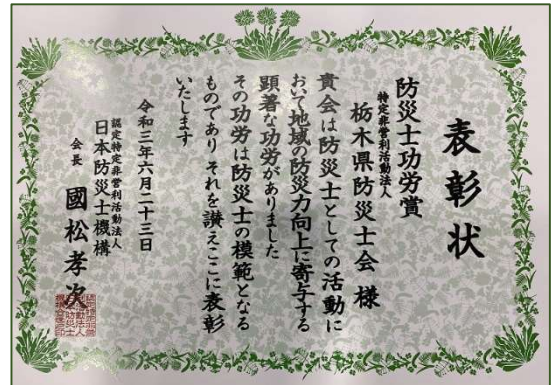 表彰状
防災士功労賞
特定非営利活動法人
栃木県防災士会 様
貴会は防災士としての活動に
おいて地域の防災力向上に寄与する
顕著な功労がありました
その功労は防災士の模範となる
ものであり それを讃えここに表彰
いたします
令和三年六月二十三日
認定特定非営利活動法人
日本防災士機構
会長 國松孝次